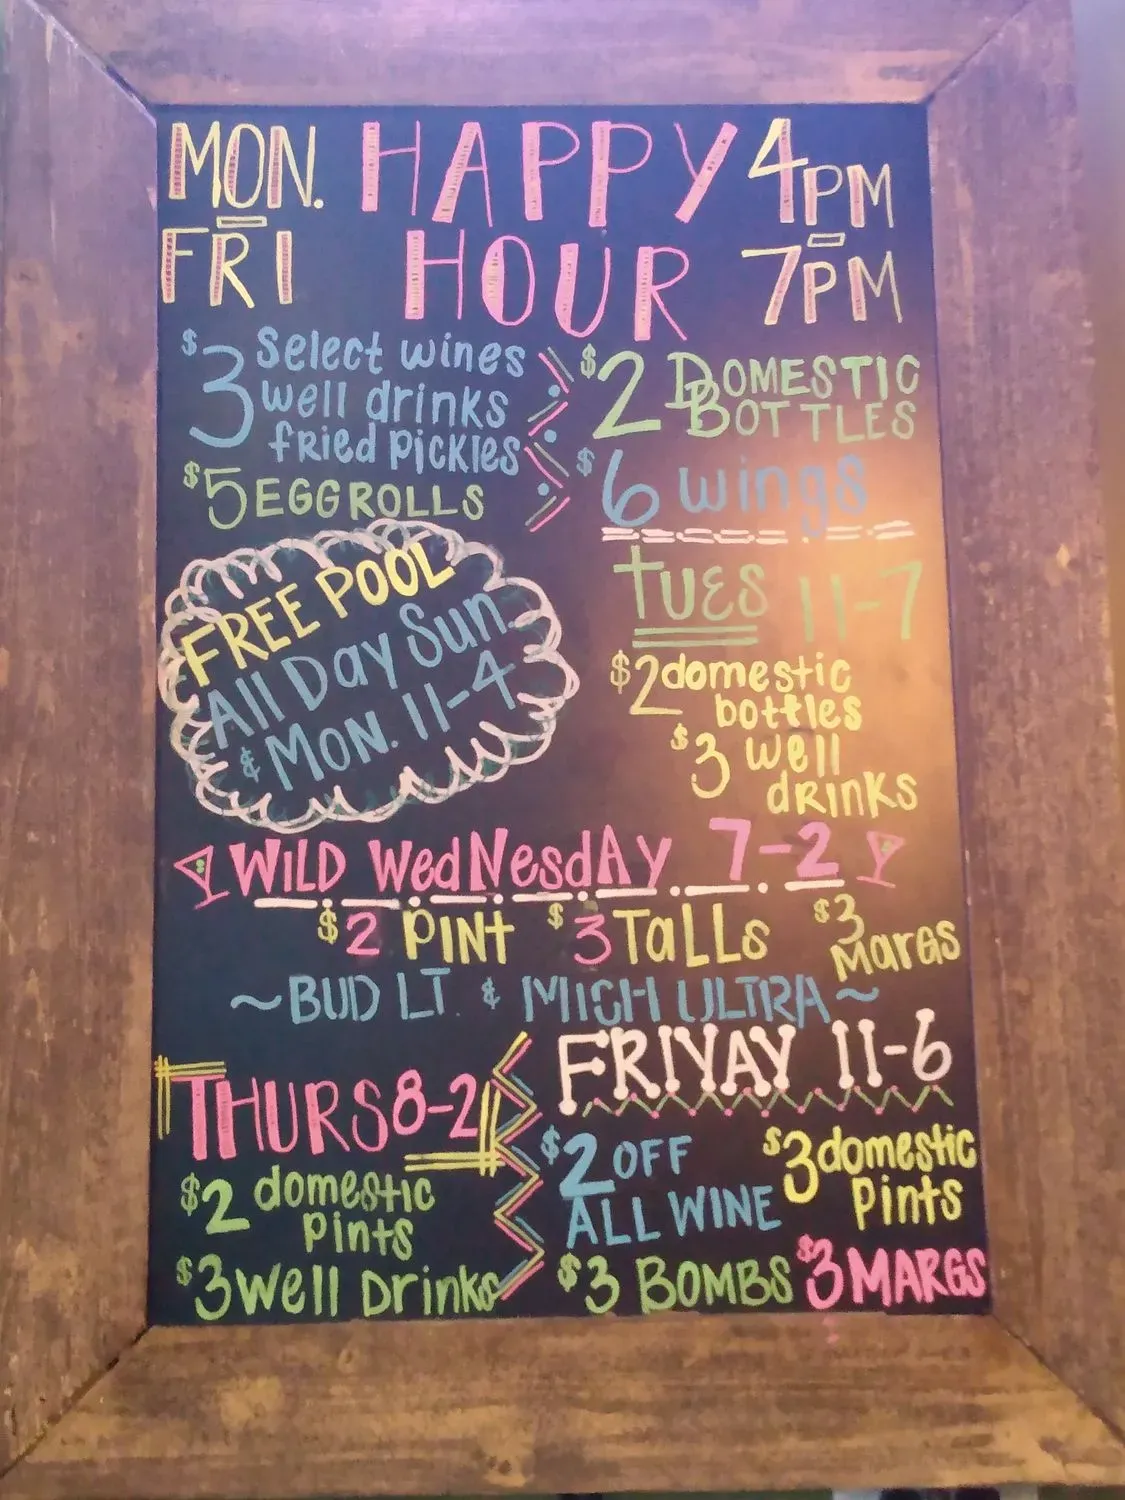 MON. - FRI
HAPPY HOUR
4PM - 7PM
$3 Select wines
well drinks
fried pickles
$5 EGGROLLS
$2 DOMESTIC
BOTTLES
$6 wings
FREE POOL
All Day Sun.
& MON. 11-4
TUES 11-7
$2 domestic
bottles
$3 well
drinks
WILD WedNesdAy 7-2
$2 PINT $3 TaLLs $3 MarGs
~BUD LT. & MICH ULTRA~
THURS 8-2
$2 domestic
pints
$3 Well Drinks
FRIYAY 11-6
$2 OFF
ALL WINE
$3 domestic
pints
$3 BOMBS $3 MARGS